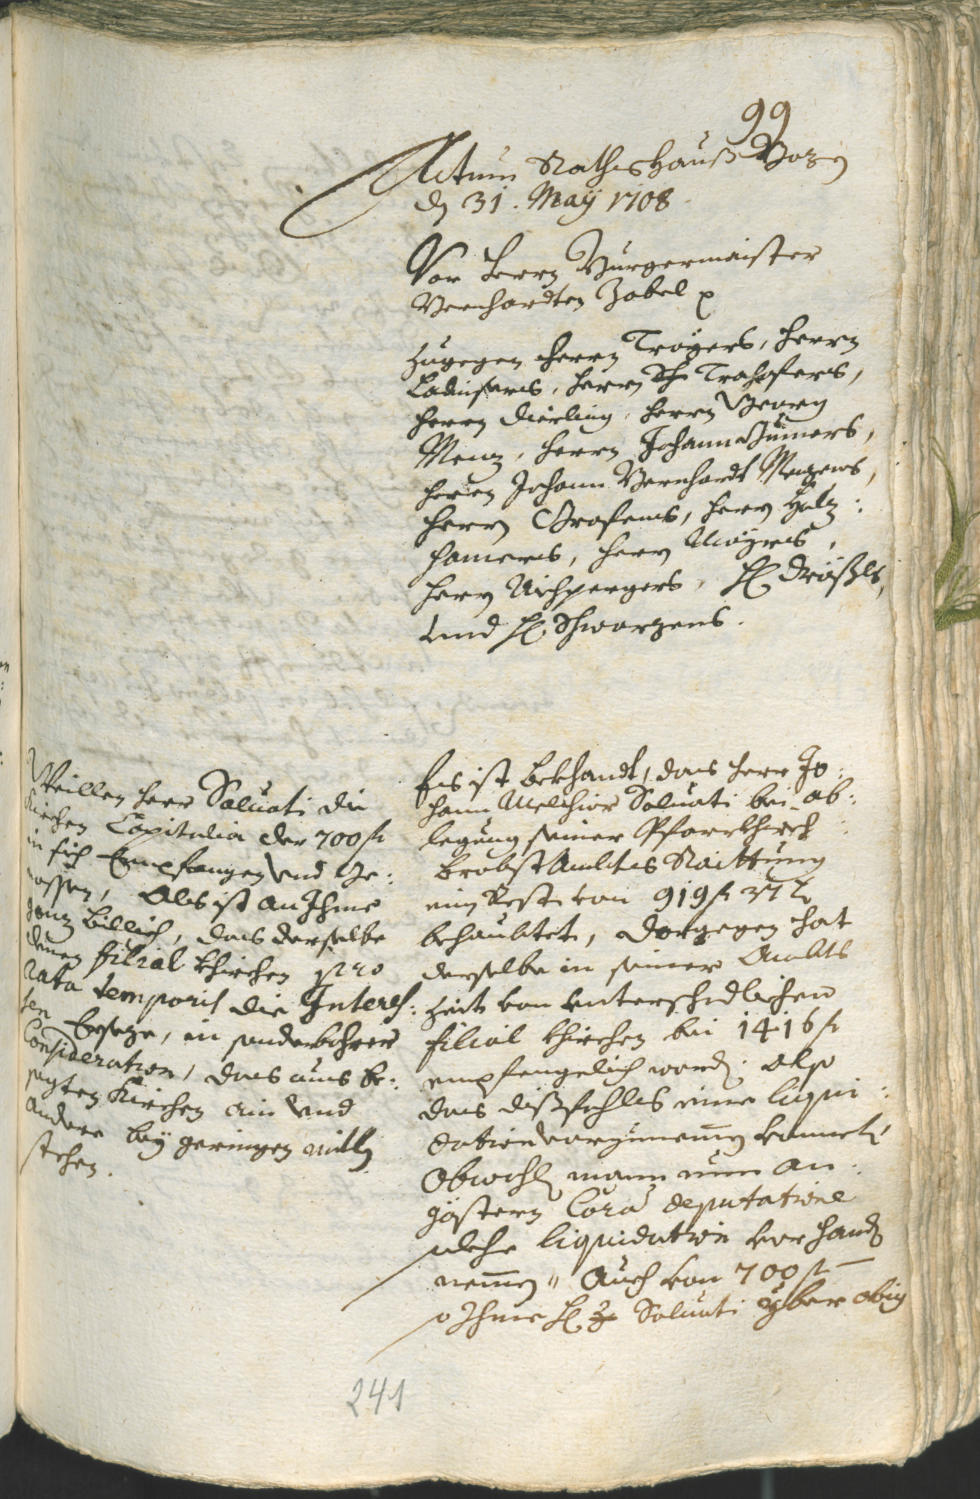 99
Actum Rathshauß Bozen
den 31. Maÿ 1708
Vor Herrn Burgermaister
Bernhardten Zobel
Zugegen Herrn Troÿers, Herrn
Ladinsers, Herrn Trahofers,
Herrn Dierling, Herrn Georg
Menz, Herrn Johann Gumers,
Herrn Johann Bernhardt Menzens,
Herrn Grafens, Herrn Holz:
hamers, Herrn Maÿrs,
Herrn Aichpergers, H. Dräßls,
und H. Schwarzens.
Weillen Herr Saluati die
Kirchen Capitalia der 700 fl
in sich Empfangen und ge:
nossen, Als ist an Ihme
ganz billich, das derselbe
denen filial Khirchen pro
rata temporis die Interes:
sen Erseze, in sonderbahrer
Consideration, das auns be:
sagten Kirchen ain und
andere beÿ geringen mitln
stehen.
Es ist bekhandt, das Herr Jo:
hann Melchior Saluati bei ab:
legung seiner Pfarrkhirch
brobst Ambts Raittung
ein Rest von 919 fl 37
behaubtet, dargegen hat
derselbe in seiner Ambts
Zeit von unterschidlichen
filial Khirchen bei 1416 fl
empfenglich worden. also
das dißfahls eine liqui:
dation vorzunemmen kommet.
Obwohlen mann nun an
gestern Cora deputatione
solche liquidation vor handen
nemmen, Auch von 700 fl
Ihme H. Saluati yber obig
241